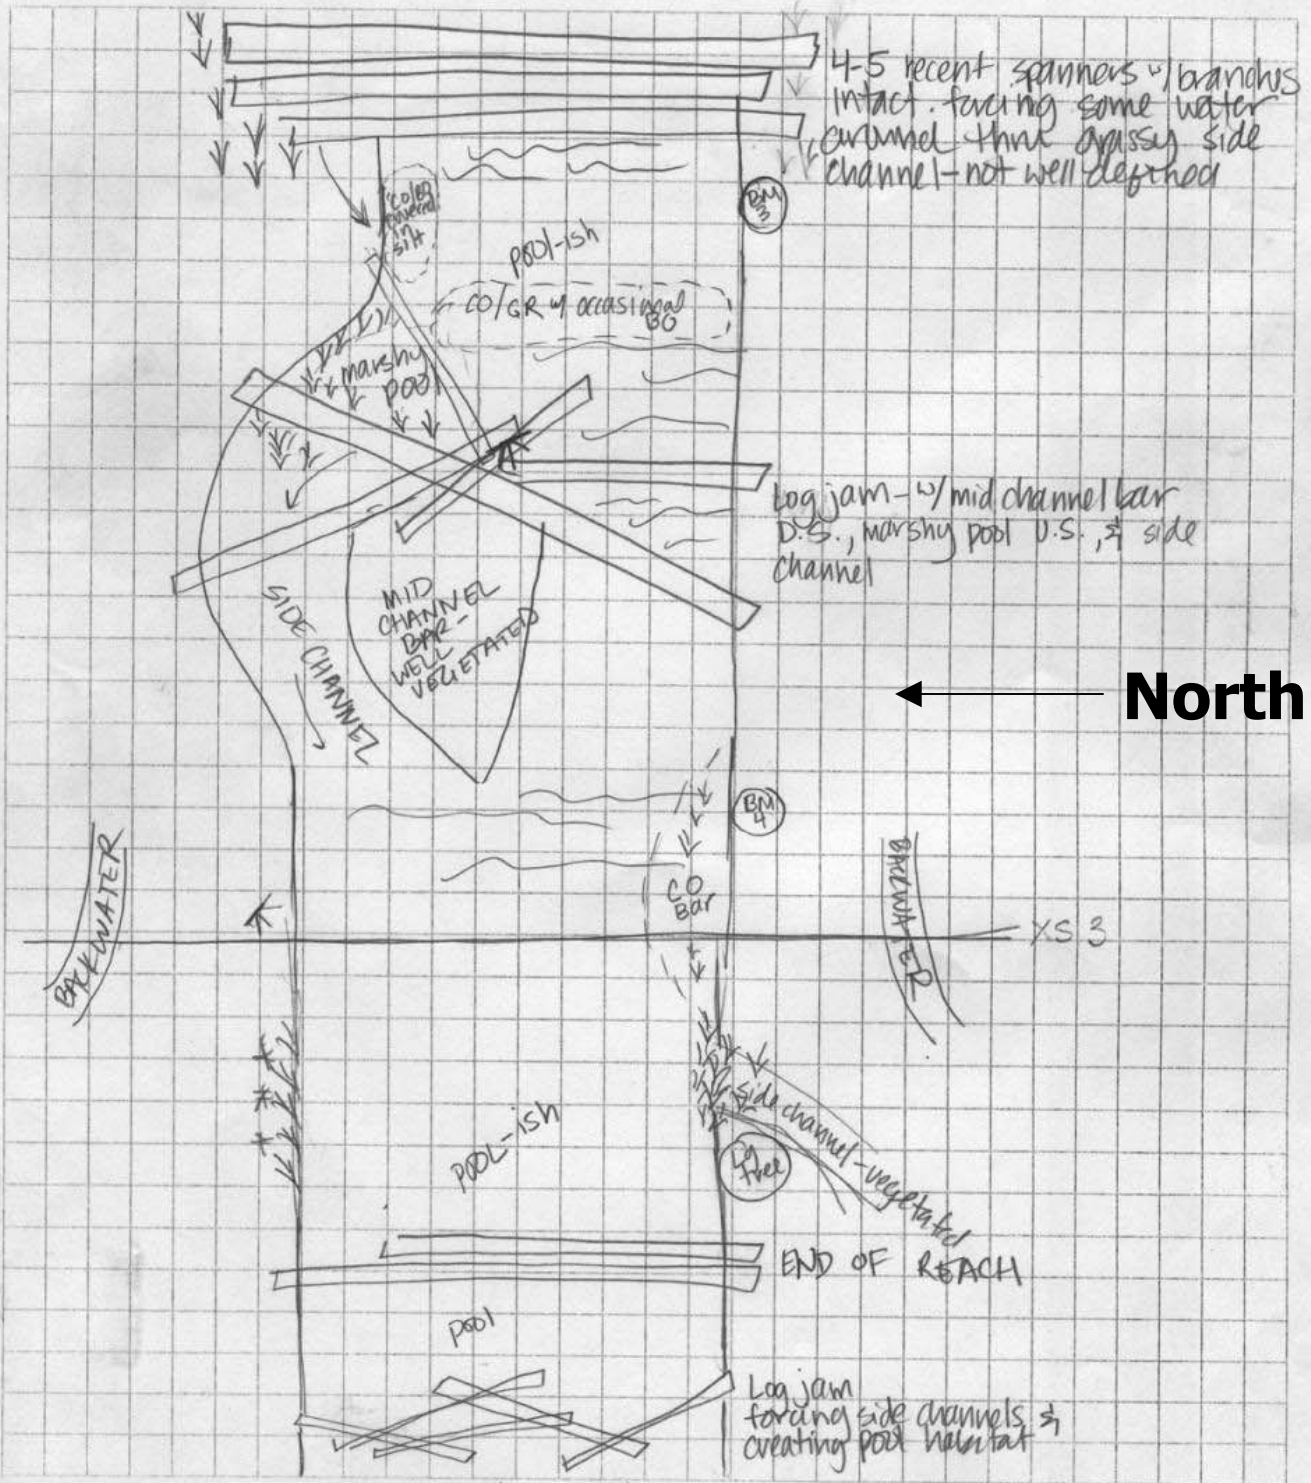 4-5 recent spanners w/ branches
intact. forcing some water
around thru grassy side
channel - not well defined
BM
3
CO/BO
covered
in
silt
pool-ish
CO/GR w/ occasional
BO
marshy
pool
Log jam - w/ mid channel bar
D.S., marshy pool U.S., & side
channel
MID
CHANNEL
BAR-
WELL
VEGETATED
SIDE CHANNEL
North
BM
4
CO
Bar
BACKWATER
BACKWATER
XS 3
side channel - vegetated
Lg
tree
POOL-ish
END OF REACH
pool
Log jam
forcing side channels &
creating pool habitat